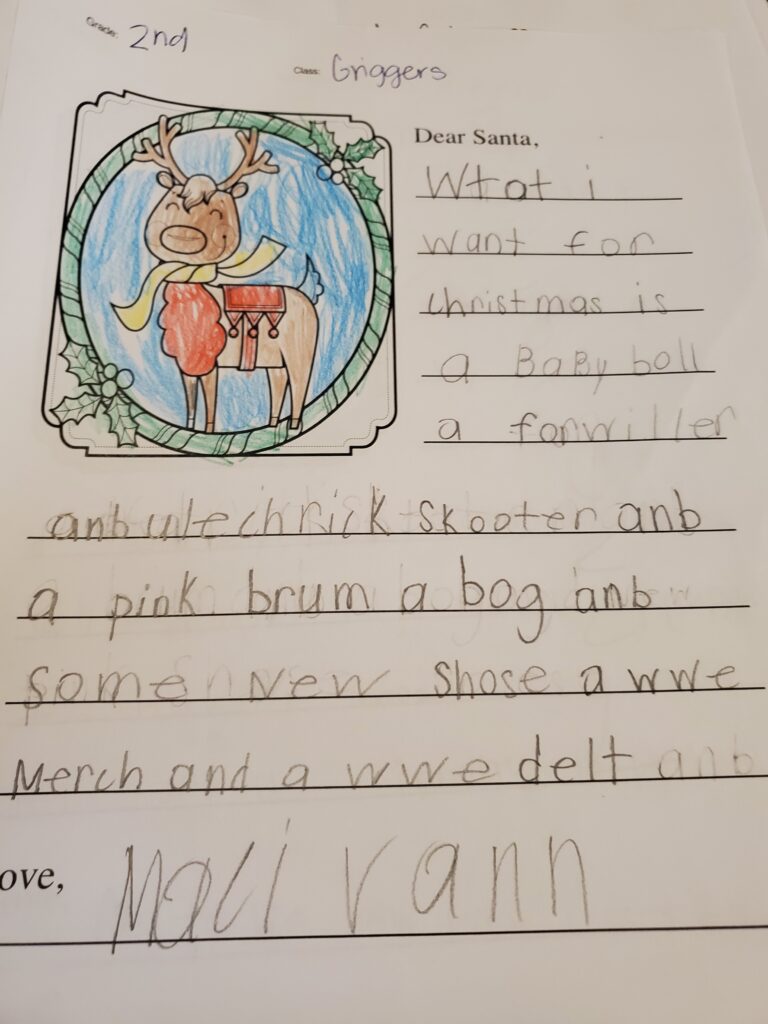 Grade: 2nd
Class: Griggers
Dear Santa,
Wtat i
want for
christmas is
a BaBy boll
a forwiller
anb ulechrick skooter anb
a pink brum a bog anb
some New shose a wwe
Merch and a wwe delt anb
ove,
Mali vann